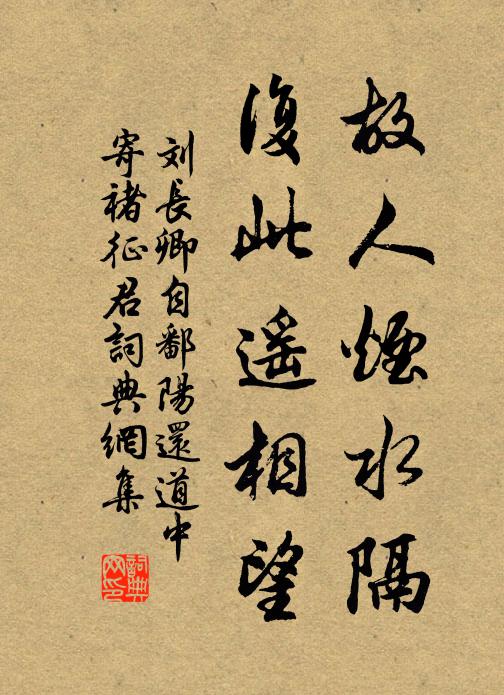 故人煙水隔
復此遥相望
刘長卿自鄱陽還道中
寄褚征君詞典網集
詞典网印